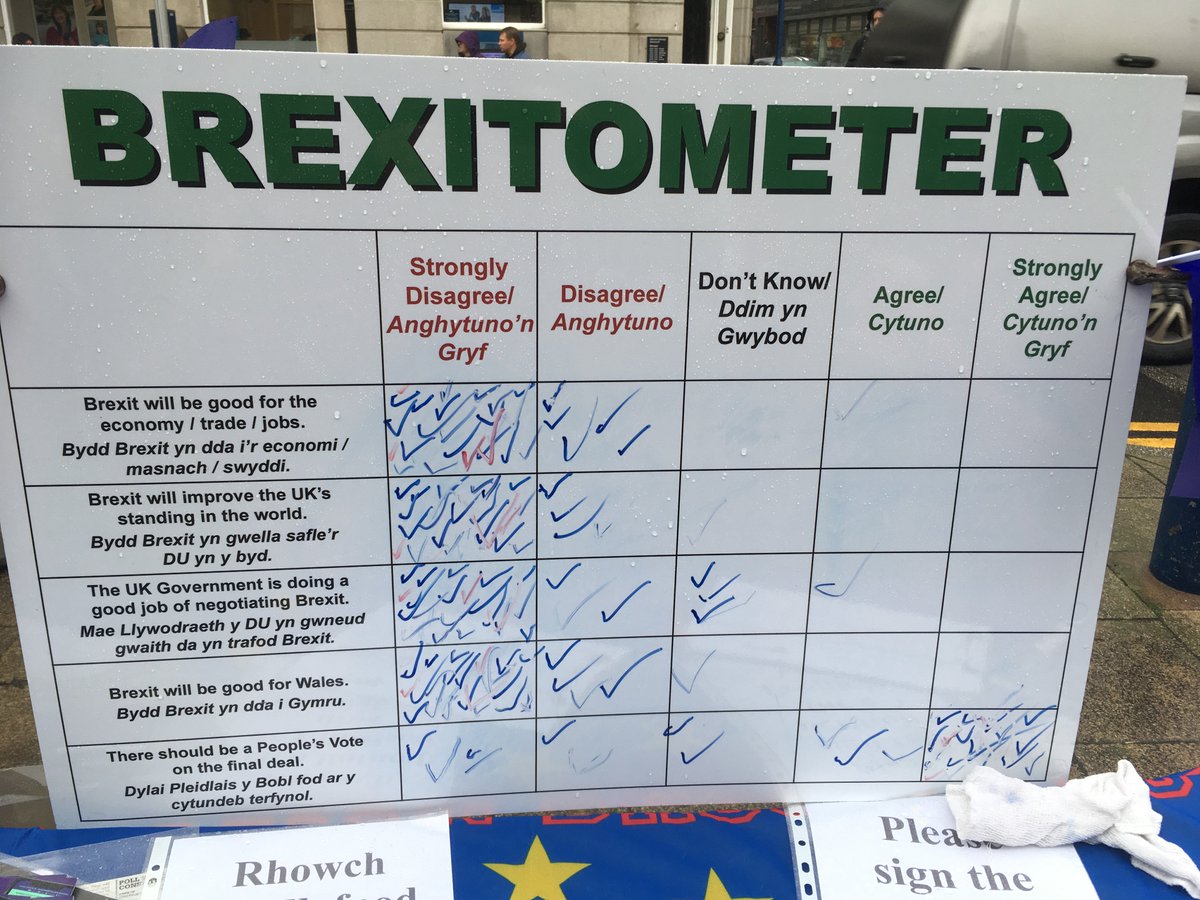 BREXITOMETER
Strongly
Disagree/
Anghytuno'n
Gryf
Disagree/
Anghytuno
Don't Know/
Ddim yn
Gwybod
Agree/
Cytuno
Strongly
Agree/
Cytuno'n
Gryf
Brexit will be good for the
economy / trade / jobs.
Bydd Brexit yn dda i'r economi /
masnach / swyddi.
Brexit will improve the UK's
standing in the world.
Bydd Brexit yn gwella safle'r
DU yn y byd.
The UK Government is doing a
good job of negotiating Brexit.
Mae Llywodraeth y DU yn gwneud
gwaith da yn trafod Brexit.
Brexit will be good for Wales.
Bydd Brexit yn dda i Gymru.
There should be a People's Vote
on the final deal.
Dylai Pleidlais y Bobl fod ar y
cytundeb terfynol.
Rhowch
Please
sign the